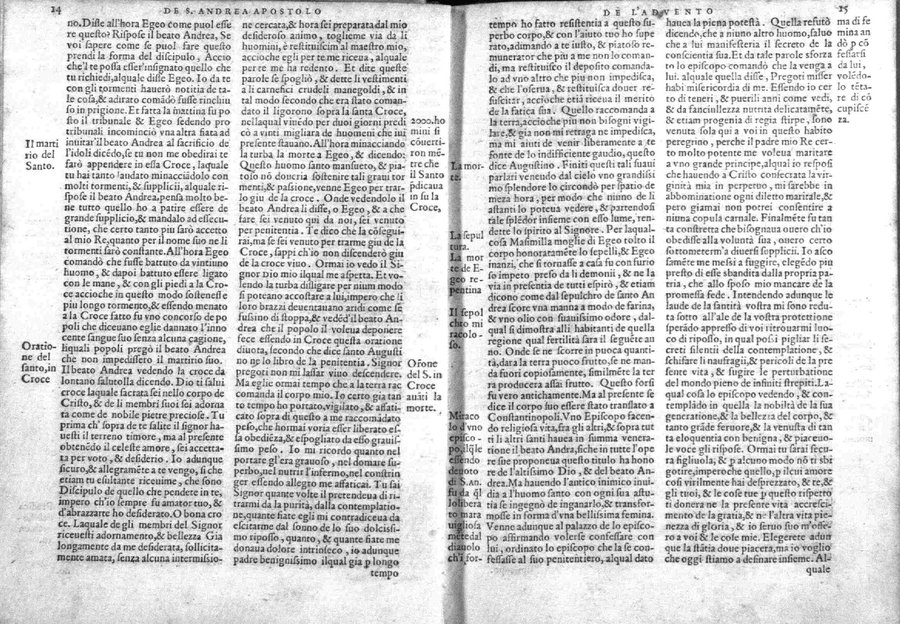 14
DE S. ANDREA APOSTOLO
no. Disse all'hora Egeo come puol esse
re questo? Rispose il beato Andrea, Se
voi sapere come se puol fare questo
prendi la forma del discipulo, Accio
che'l te possa esser'insignato quello che
tu richiedi, alquale disse Egeo. Io da te
con gli tormenti hauerò notitia de ta-
le cosa, & adirato comādò fusse rinchiu
so in prigione. Et fatta la mattina su po
sto il tribunale & Egeo sedendo pro
tribunali incominciò vna altra fiata ad
inuitar'il beato Andrea al sacrificio de
l'idoli dicēdo, se tu non me obedirai te
farò appendere in essa Croce, laquale
tu hai tanto laudato minacciādolo con
molti tormenti, & supplicii, alquale ri-
spose il beato Andrea, pensa molto be-
ne tutto quello ho a patire essere de
grande supplicio, & mandalo ad essecu-
tione, che certo tanto piu sarò accetto
al mio Re, quanto per il nome suo ne li
tormenti sarò constante. All'hora Egeo
comandò che fusse battuto da vintiuno
huomo, & dapoi battuto essere ligato
con le mane, & con gli piedi a la Cro-
ce accioche in questo modo sostenesse
piu longo tormento, & essendo menato
a la Croce fatto fu vno concorso de po
poli che diceuano eglie dannato l'inno
cente sangue suo senza alcuna cagione,
liquali popoli pregò il beato Andrea
che non impedissero il martirio suo.
Il beato Andrea vedendo la croce da
lontano salutolla dicendo. Dio ti salui
croce laquale sacrata sei nello corpo de
Cristo, & de li membri suoi sei adorna
ta come de nobile pietre preciose. Tu
prima ch' sopra de te salite il signor ha-
uesti il terreno timore, ma al presente
obtenēdo il celeste amore, sei accetta-
ta per voto, & desiderio. Io adunque
sicuro, & allegramēte a te vengo, si che
etiam tu esultante riceuime, che sono
Discipulo de quello che pendete in te,
impero ch'io sempre fu amator tuo, &
d'abrazzarte ho desiderato. O bona cro
ce. Laquale de gli membri del Signor
riceuesti adornamento, & bellezza Gia
longamente da me desiderata, sollicita-
mente amata, senza alcuna intermissio-
Il marti
rio del
Santo.
Oratio-
ne del
santo, in
Croce
ne cercata, & hora sei preparata dal mio
desideroso animo, toglieme via da li
huomini, & restituiscim al maestro mio,
accioche egli per te me riceua, alquale
per te me ha redento. Et dite queste
parole se spogliò, & dete li vestimenti
a li carnefici crudeli manegoldi, & in
tal modo secondo che era stato coman-
dato il ligorono sopra la santa Croce,
nellaqual viuēdo per duoi giorni predi
cò a vinti migliara de huomeni che iui
presente stauano. All'hora minacciando
la turba la morte a Egeo, & dicendo.
Questo huomo santo mansueto, & pia-
toso nō doueria sostenire tali graui tor
menti, & passione, venne Egeo per trar-
lo giu de la croce. Onde vedendolo il
beato Andrea li disse, o Egeo, & a che
fare sei venuto qui da noi, sei venuto
per penitentia. Te dico che la cōsegui-
rai, ma se sei venuto per trarme giu de la
Croce, sappi ch'io non discenderò giu
de la croce viuo. Ormai io vedo il Si-
gnor Dio mio ilqual me aspetta. Et vo-
lendo la turba disligare per nium modo
si poteano accostare a lui, impero che li
loro brazzi deuentauano aridi come se
fussino di stoppa, & vedēd'il beato An-
drea che il popolo il voleua deponere
fece essendo in Croce questa oratione
diuota, secondo che dice santo Augusti
no ne lo libro de la penitentia. Signor
pregori non mi lassar descendere viuo.
Ma eglie ormai tempo che a la terra rac
comanda il corpo mio. Io certo gia tan
to tempo ho portato, vigilato, & affati-
cato sopra di questo a me raccomādato
peso, che hormai voria esser libero da es
sa obediēza, & espogliato da esso grauis-
simo peso. Io mi ricordo quanto nel
portare gl'era grauoso, nel domare su-
perbo, nel nutrir l'infermo, nel constrin
ger essendo allegro me affaticai. Tu sai
Signor quante volte il pretendeua di ri-
trarmi da la purità, dalla contemplatio-
ne, quante fiate egli mi contradiceua da
iscitarme dal sonno de lo suo dolcissi-
mo riposo, quanto, & quante fiate me
donaua dolore intrinseco, io adunque
padre benignissimo ilqual gia p longo
tempo
2000, ho
mini si
cōuerti-
ron mē-
tre che
il Santo
pdicaua
in su la
Croce,
Ofone
del S. in
Croce
auāti la
morte.
DE L'ADVENTO
15
tempo ho fatto resistentia a questo su-
perbo corpo, & con l'aiuto tuo ho supe
rato, adimando a te iusto, & piatoso re-
munerator che piu a me non lo coman-
di, ma restituisco il deposito comanda-
lo ad vno altro che piu non impedisca,
& che l'oserua, & restituisca douer re
suscitar, accioche etiā riceua il merito
de la fatica sua. Quello raccomanda a
la terra, accioche piu non bisogni vigi-
lare, & gia non mi retraga ne impedisca,
ma mi aiuti de venir liberamente a te
fonte de lo indifficiente gaudio, questo
dice Augustino. Finiti questi tali suaui
parlari venendo dal cielo vno grandissi
mo splendore lo circondò per spatio de
meza hora, per modo che niuno de li
astanti lo poteua vedere, & partendosi
tale splēdor insieme con esso lume, ren-
dette lo spirito al Signore. Per laqual-
cosa Masimilla moglie di Egeo tolto il
corpo honoratamente lo sepellì, & Egeo
inanzi, che si tornasse a casa fu con furio
so impeto preso da li demonii, & ne la
via in presentia de tutti espirò, & etiam
dicono come dal sepulchro de santo An
drea score vna manna a modo de farina,
& vno olio con suauissimo odore, dal-
qual si dimostra alli habitanti de quella
regione qual fertilità sara il seguēte an
no. Onde se ne scorre in puoca quanti-
tà, dara la terra puoco frutto, se ne man
da fuori copiosamente, similmēte la ter
ra producera assai frutto. Questo forsi
fu vero antichamente. Ma al presente se
dice il corpo suo essere stato translato a
Constantinopoli. Vno Episcopo facen-
do religiosa vita, fra gli altri, & sopra tut
ti li altri santi hauea in summa venera-
tione il beato Andrea, siche in tutte l'ope
re sue proponeua questo titulo ha hono
re de l'altissimo Dio, & del beato An-
drea. Ma hauendo l'antico inimico inui-
dia a l'huomo santo con ogni sua astu-
tia se ingegno de inganarlo, & transfor-
mosse in forma d'vna bellissima femina.
Venne adunque al palazzo de lo episco-
po affirmando volerse confessare con
lui, ordinato lo episcopo che la se con-
fessasse al suo penitentiero, alqual dato
La mor-
te.
La sepul
tura.
La mor
te de E-
geo re-
pentina
Il sepol
chto mi
racolo-
so.
Miraco
lo d'vno
episco-
po, ilqle
essendo
deuoto
di S. An.
fu da ql
lo libera
to mara
uigliosa
mēte dal
diauolo
ch'i for-
hauea la piena potestà. Quella refutò
dicendo, che a niuno altro huomo, saluo
che a lui manifesteria il secreto de la
conscientia sua. Et da tale parole sforza
to lo episcopo comandò che la venga a
lui. alquale quella disse, Pregoti misser
habbi misericordia di me. Essendo io cer
to di teneri, & puerili anni come vedi,
& da fanciulezza nutrita delicatamente,
& etiam progenia de regia stirpe, sono
venuta sola qui a voi in questo habito
peregrino, perche il padre mio Re cer-
to molto potente me voleua maritare
a vno grande principe, alqual io resposi
che hauendo a Cristo consecrata la vir-
ginità mia in perpetuo, mi sarebbe in
abbominatione ogni diletto maritale, &
pero giamai non potrei consentire a
niuna copula carnale. Finalmēte fu tan
ta constretta che bisognaua ouero ch'io
obedisse alla voluntà sua, ouero certo
sottometterm'a diuersi supplicii. Io asco
samēte me messi a fuggire, elegēdo piu
presto di esse sbandita dalla propria pa-
tria, che allo sposo mio mancare de la
promessa fede. Intendendo adunque le
laude de la santità vostra mi sono redu-
ta sotto all'ale de la vostra protettione
sperādo appresso di voi ritrouarmi luo-
co di riposso, in qual possi pigliar li se-
creti silentii della contemplatione, &
schifare li naufragii, & pericoli de la pre
sente vita, & fugire le perturbatione
del mondo pieno de infiniti strepiti. La-
qual cosa lo episcopo vedendo, & con-
templādo in quella la nobiltà de la sua
generatione, & la bellezza del corpo, &
tanto grāde feruore, & la venustà di tan
ta eloquentia con benigna, & piaceuo-
le voce gli rispose. Ormai tu sarai secu-
ra figliuola, & p alcuno modo nō ti sbi
gotire, impero che quello, p ilcui amore
cosi virilmente hai desprezzato, & te, &
gli tuoi, & le cose tue p questo rispetto
ti donera ne la presente vita accresci-
mento de la gratia, & ne l'altra vita pie-
nezza di gloria, & io seruo suo m'offe-
ro a voi & le cose mie. Elegerete adun
que la stāria doue piacera, ma io voglio
che oggi stiamo a desinare insieme. Al-
quale
ma di fe
mina an
dò p cō
fessarsi
da lui,
volēdo-
lo tēta-
re di cō
cupisce
za.